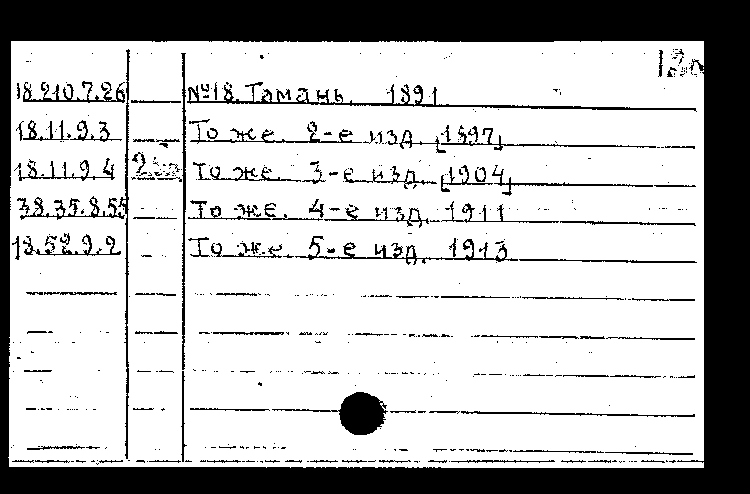 18.210.7.26 №18. Тамань. 1891
18.11.9.3 То же. 2-е изд. [1897]
18.11.9.4 То же. 3-е изд. [1904]
38.35.8.55 То же. 4-е изд. 1911
18.52.9.2 То же. 5-е изд. 1913